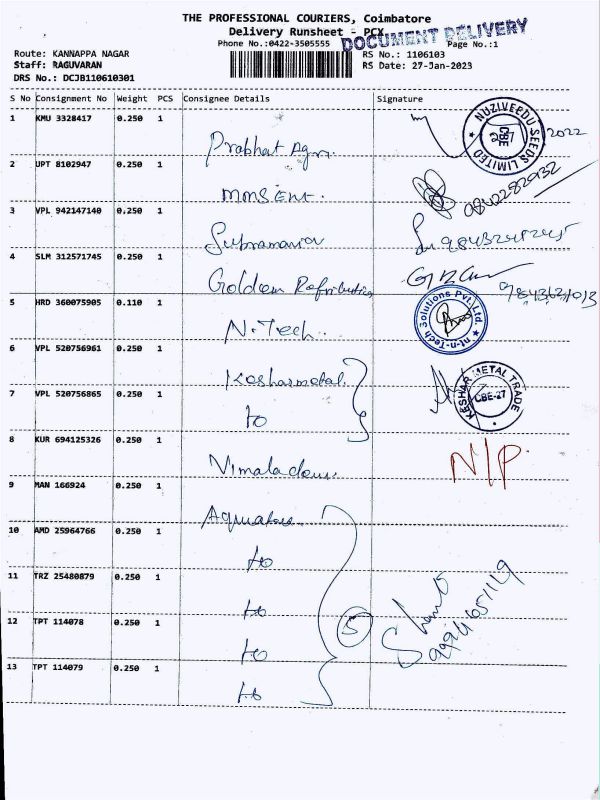 THE PROFESSIONAL COURIERS, Coimbatore
Delivery Runsheet - PCX
DOCUMENT DELIVERY
Phone No.:0422-3505555
Page No.:1
Route: KANNAPPA NAGAR
RS No.: 1106103
Staff: RAGUVARAN
RS Date: 27-Jan-2023
DRS No.: DCJB110610301
S No Consignment No Weight PCS Consignee Details Signature
1 KMU 3328417 0.250 1
Prabhat Agri.
NUZIVEEDU SEEDS LIMITED
CBE
2022
2 UPT 8102947 0.250 1
MMS Ent.
9842282032
3 VPL 942147140 0.250 1
Subramania
4 SLM 312571745 0.250 1
Golden
5 HRD 360075905 0.110 1
N.Tech.
nt-n-Tech Solutions Pvt. Ltd.
6 VPL 520756961 0.250 1
Kesharmetal
KESHAR METAL TRADE
CBE-27
7 VPL 520756865 0.250 1
to
8 KUR 694125326 0.250 1
N/P
9 MAN 166924 0.250 1
10 AMD 25964766 0.250 1
to
11 TRZ 25480879 0.250 1
to
12 TPT 114078 0.250 1
5
to
13 TPT 114079 0.250 1
to